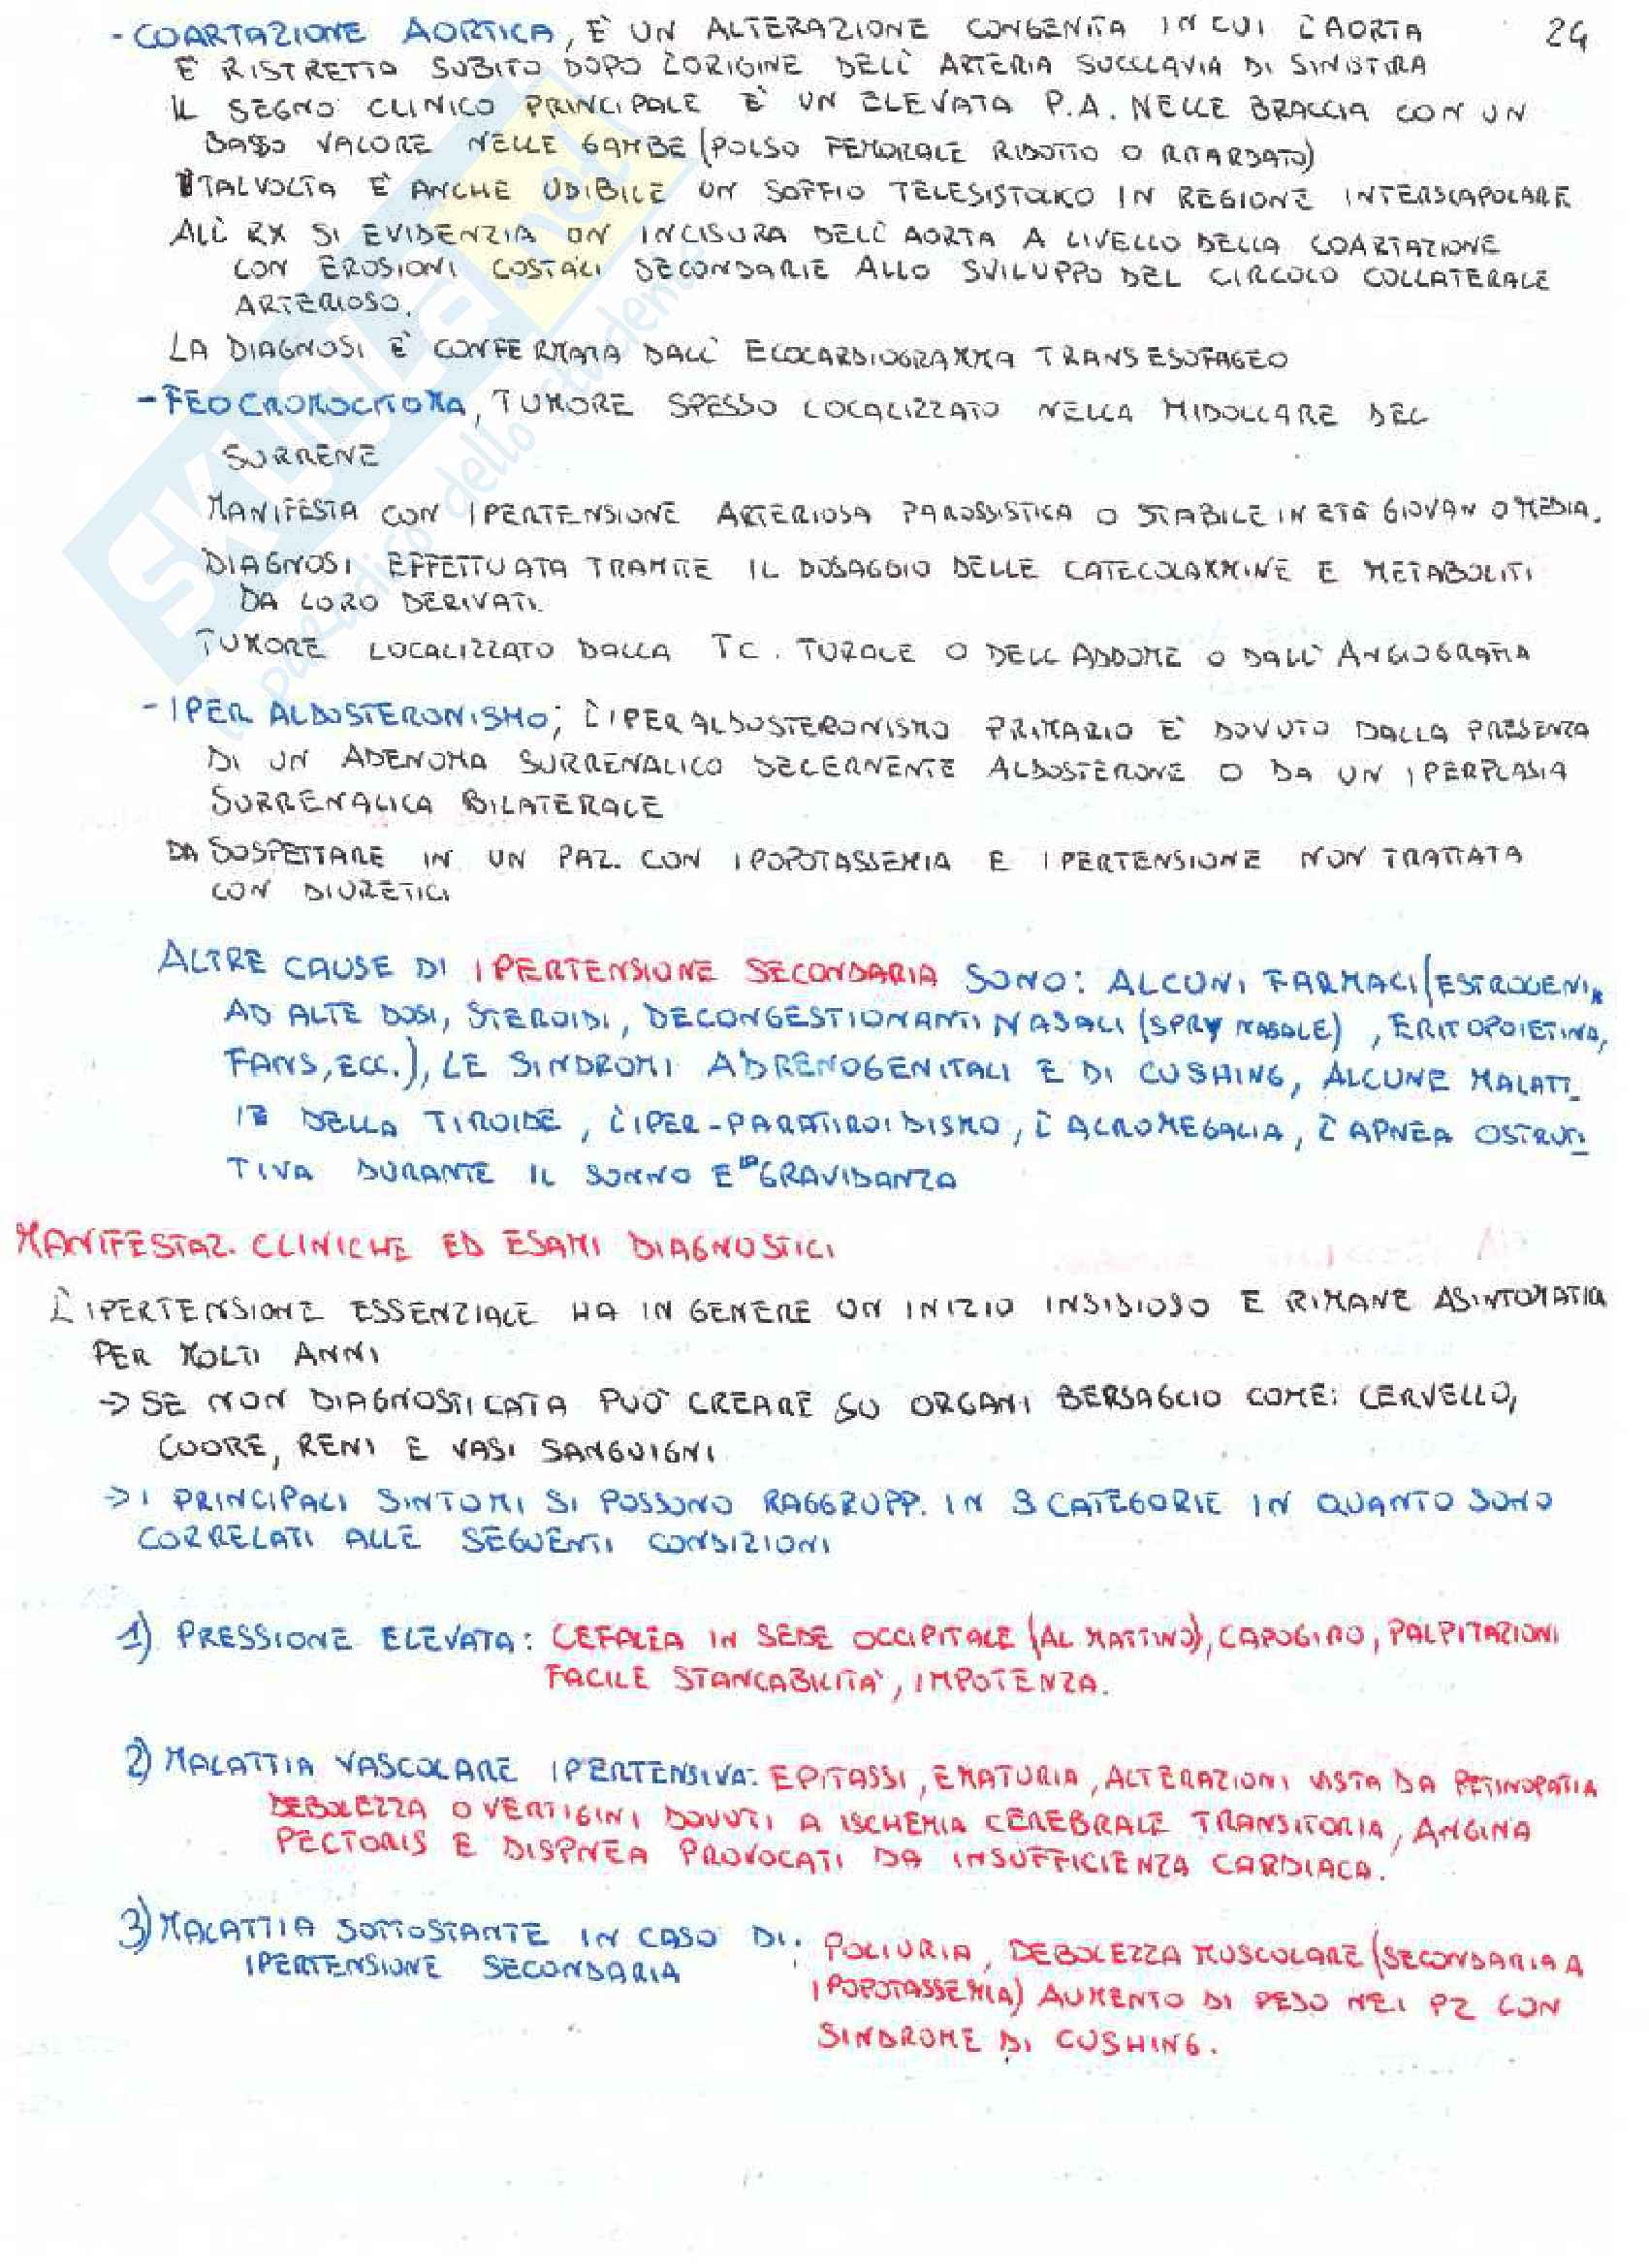 - COARTAZIONE AORTICA, È UN ALTERAZIONE CONGENITA IN CUI L'AORTA 24
È RISTRETTA SUBITO DOPO L'ORIGINE DELL' ARTERIA SUCCLAVIA DI SINISTRA
IL SEGNO CLINICO PRINCIPALE È UN ELEVATA P.A. NELLE BRACCIA CON UN
BASSO VALORE NELLE GAMBE (POLSO FEMORALE RIDOTTO O RITARDATO)
TALVOLTA È ANCHE UDIBILE UN SOFFIO TELESISTOLICO IN REGIONE INTERSCAPOLARE
ALL' RX SI EVIDENZIA UN INCISURA DELL' AORTA A LIVELLO DELLA COARTAZIONE
CON EROSIONI COSTALI SECONDARIE ALLO SVILUPPO DEL CIRCOLO COLLATERALE
ARTERIOSO.
LA DIAGNOSI È CONFERMATA DALL' ECOCARDIOGRAMMA TRANSESOFAGEO
- FEOCROMOCITOMA, TUMORE SPESSO LOCALIZZATO NELLA MIDOLLARE DEL
SURRENE
MANIFESTA CON IPERTENSIONE ARTERIOSA PAROSSISTICA O STABILE IN ETÀ GIOVAN O MEDIA.
DIAGNOSI EFFETTUATA TRAMITE IL DOSAGGIO DELLE CATECOLAMMINE E METABOLITI
DA LORO DERIVATI.
TUMORE LOCALIZZATO DALLA TC. TORACE O DELL ADDOME O DALL' ANGIOGRAFIA
- IPER ALDOSTERONISMO; L'IPERALDOSTERONISMO PRIMARIO È DOVUTO DALLA PRESENZA
DI UN ADENOMA SURRENALICO SECERNENTE ALDOSTERONE O DA UN IPERPLASIA
SURRENALICA BILATERALE
DA SOSPETTARE IN UN PAZ. CON IPOPOTASSEMIA E IPERTENSIONE NON TRATTATA
CON DIURETICI
ALTRE CAUSE DI IPERTENSIONE SECONDARIA SONO: ALCUNI FARMACI (ESTROGENI
AD ALTE DOSI, STEROIDI, DECONGESTIONANTI NASALI (SPRY NASALE), ERITOPOIETINA,
FANS, ECC.), LE SINDROMI ADRENOGENITALI E DI CUSHING, ALCUNE MALATT_
IE DELLA TIROIDE, L'IPER-PARATIROIDISMO, L'ACROMEGALIA, L'APNEA OSTRUT_
TIVA DURANTE IL SONNO E LA GRAVIDANZA
MANIFESTAZ. CLINICHE ED ESAMI DIAGNOSTICI
L'IPERTENSIONE ESSENZIALE HA IN GENERE UN INIZIO INSIDIOSO E RIMANE ASINTOMATICA
PER MOLTI ANNI
-> SE NON DIAGNOSTICATA PUÒ CREARE SU ORGANI BERSAGLIO COME: CERVELLO,
CUORE, RENI E VASI SANGUIGNI
-> I PRINCIPALI SINTOMI SI POSSONO RAGGRUPP. IN 3 CATEGORIE IN QUANTO SONO
CORRELATI ALLE SEGUENTI CONDIZIONI
1) PRESSIONE ELEVATA: CEFALEA IN SEDE OCCIPITALE (AL MATTINO), CAPOGIRO, PALPITAZIONI
FACILE STANCABILITÀ, IMPOTENZA.
2) MALATTIA VASCOLARE IPERTENSIVA: EPITASSI, EMATURIA, ALTERAZIONI VISTA DA RETINOPATIA
DEBOLEZZA O VERTIGINI DOVUTI A ISCHEMIA CEREBRALE TRANSITORIA, ANGINA
PECTORIS E DISPNEA PROVOCATI DA INSUFFICIENZA CARDIACA.
3) MALATTIA SOTTOSTANTE IN CASO DI: POLIURIA, DEBOLEZZA MUSCOLARE (SECONDARIA A
IPERTENSIONE SECONDARIA IPOPOTASSEMIA) AUMENTO DI PESO NEI PZ CON
SINDROME DI CUSHING.
SKUOLA.net
il paradiso dello studente